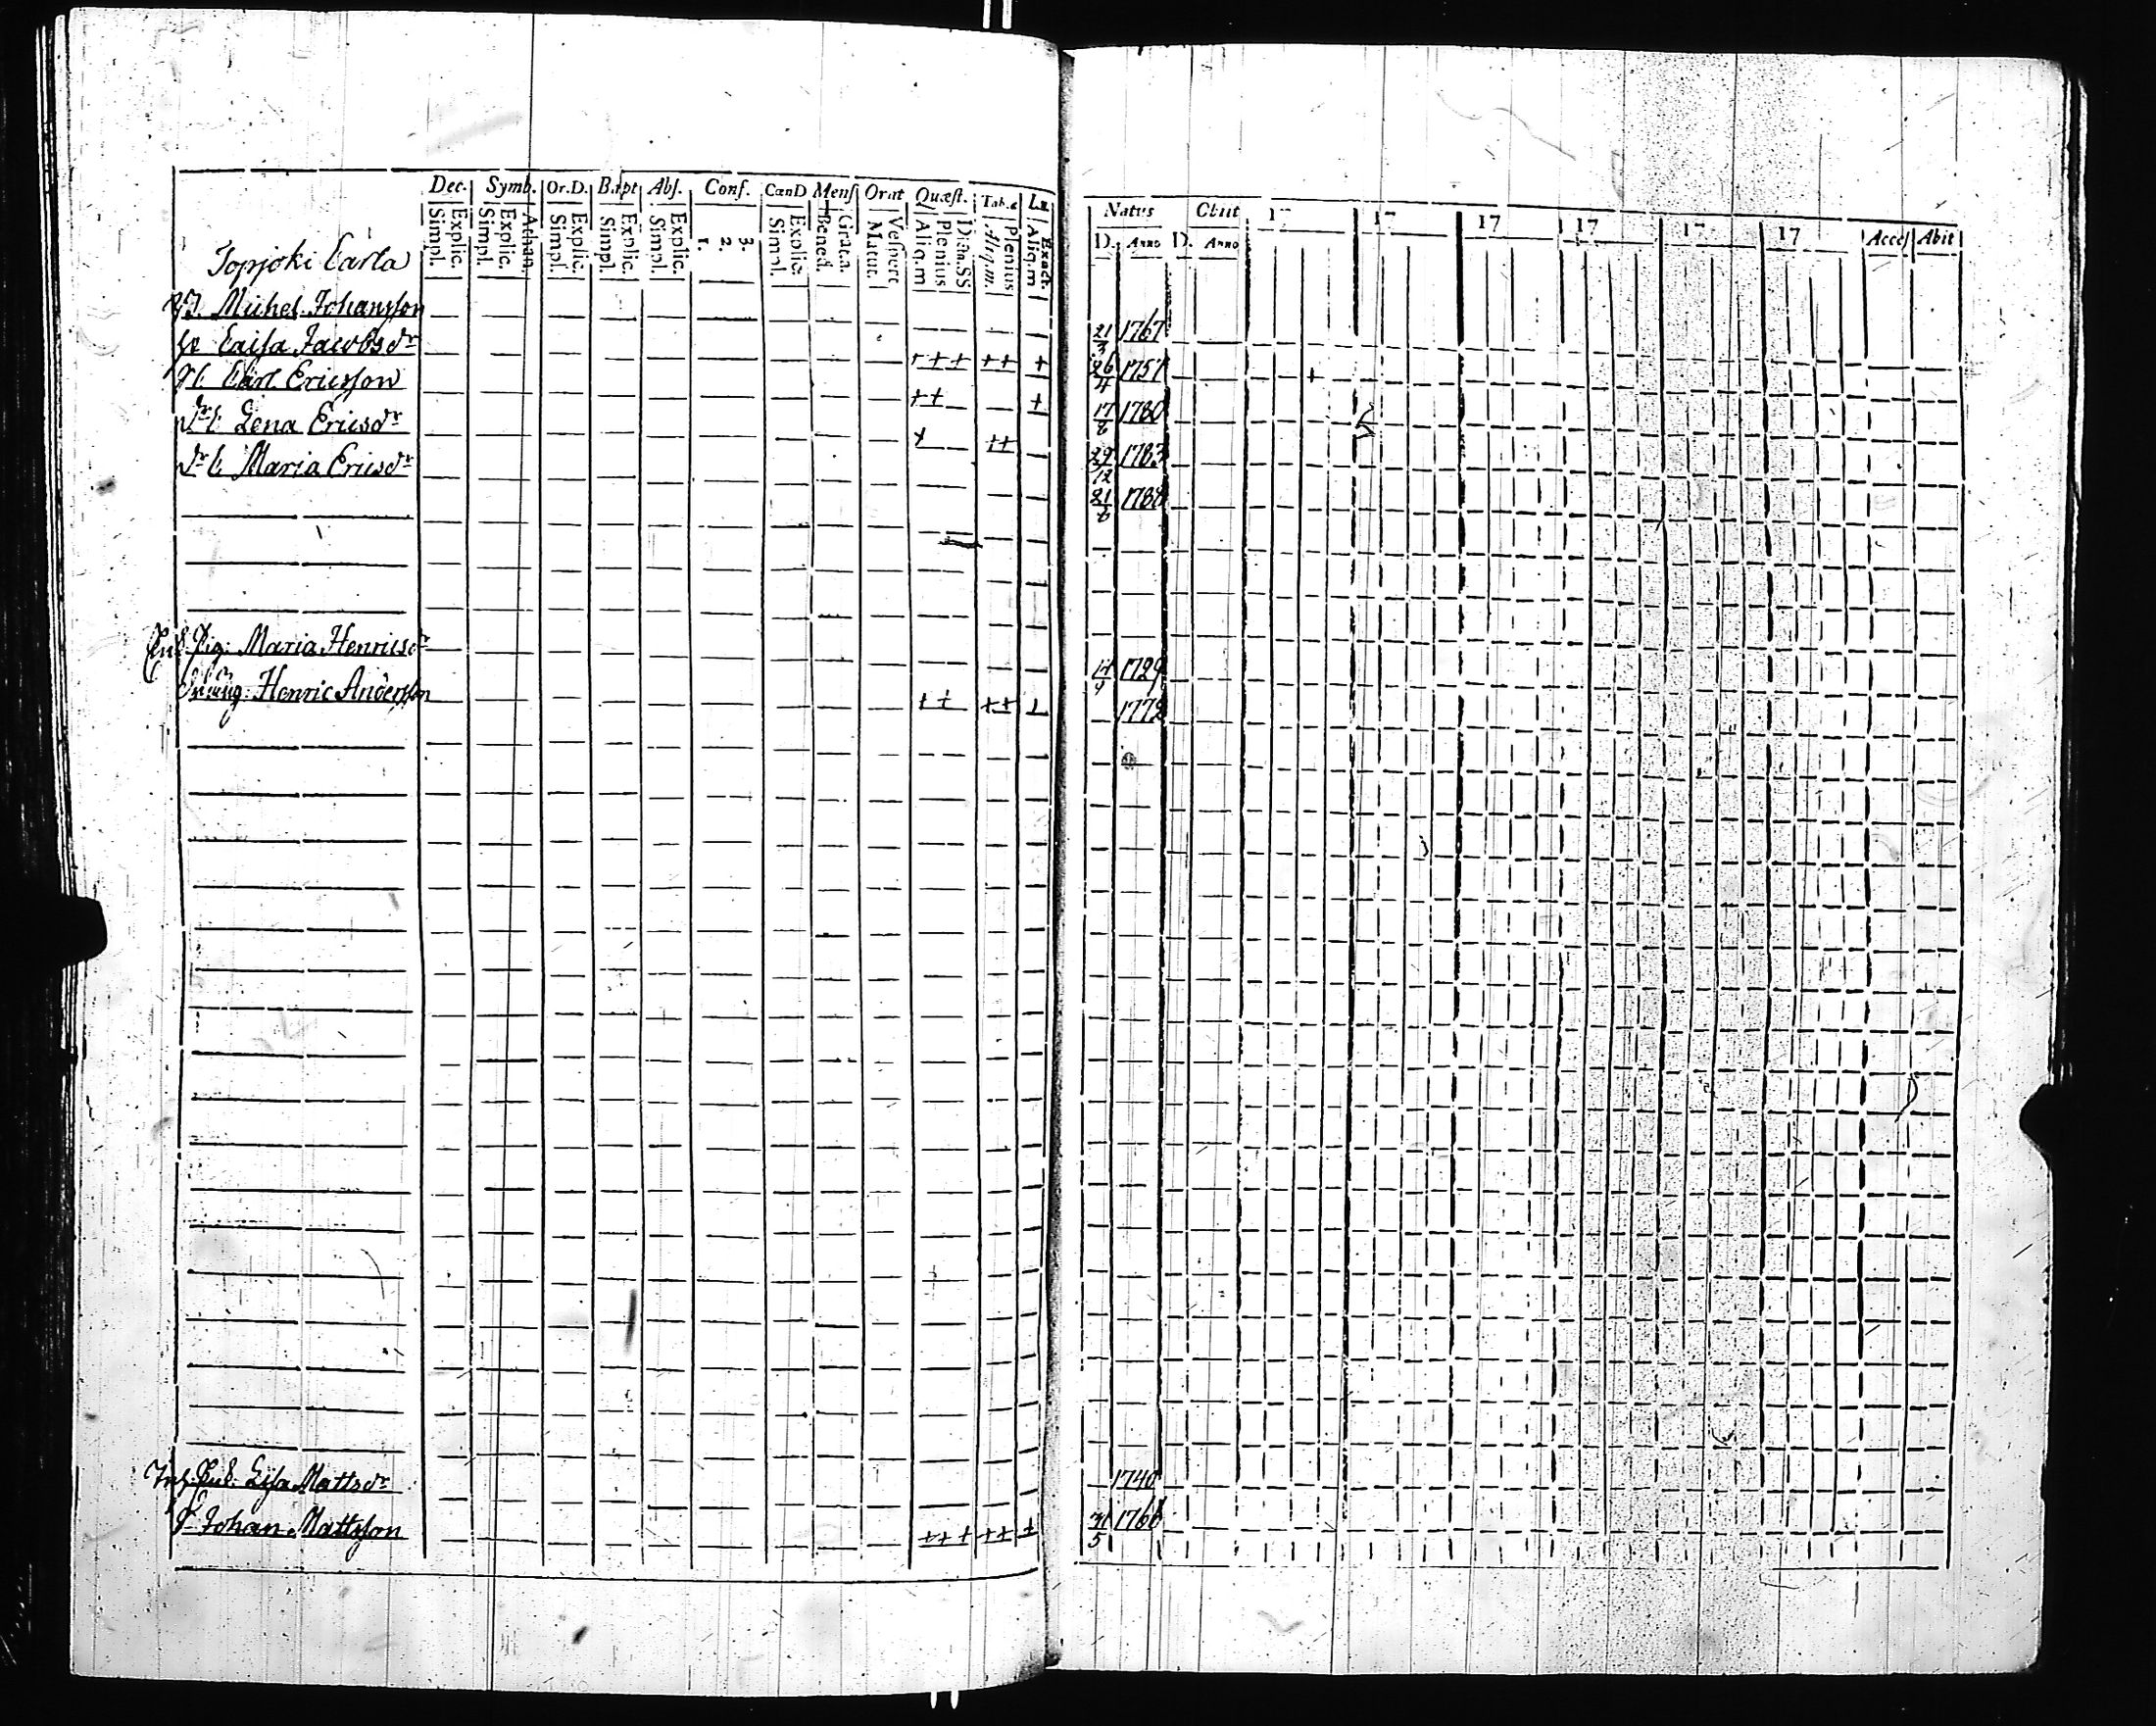 Dec. Symb. Or.D. Bapt Abs. Conf. CœnD Mens Orat Quæst. Tab.œ
Simpl. Explic. Simpl. Explic. Athan. Simpl. Explic. Simpl. Explic. Simpl. Explic. 1. 2. 3. Simpl. Explic. Bened. Grat.a. Matut. Vespere Aliq.m Plenius Dicta.SS Aliq.m. Plenius Aliq.m Exact.
Natus Obiit 17 17 17 17 17 17 Acces Abit
D. Anno D. Anno
Topjoki Carla
Michel Johansson 21/3 1767
Caisa Jacobsdr + + + + + + 26/4 1757 +
Carl Ericsson + + + 17/8 1780
Lena Ericsdr + + 29/12 1783
Maria Ericsdr 21/6 1788
Pig: Maria Henricsdr 14/9 1729
Henric Andersson + + + + 1772
Inh: Lisa Mattsdr 1740
Johan Mattsson + + + + + + 31/5 1768